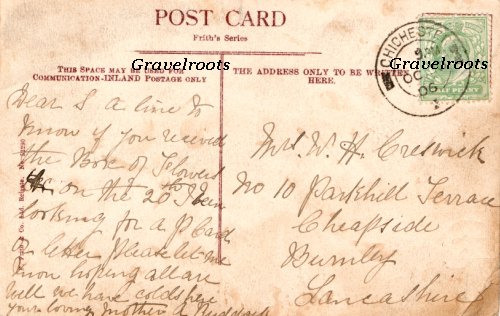 POST CARD
Frith's Series
THIS SPACE MAY BE USED FOR
COMMUNICATION-INLAND POSTAGE ONLY
THE ADDRESS ONLY TO BE WRITTEN
HERE.
Gravelroots
Gravelroots
CHICHESTER
OC
06
HALF PENNY
Dear S a line to
know if you received
the Box of Flowers
on the 20th I been
looking for a P Card
or letter Please let me
know hoping all are
well we have colds here
your loving Mother
Mrs W. H. Creswick
No 10 Parkhill Terrace
Cheapside
Burnley
Lancashire
& Co. Ltd. Reigate. No.